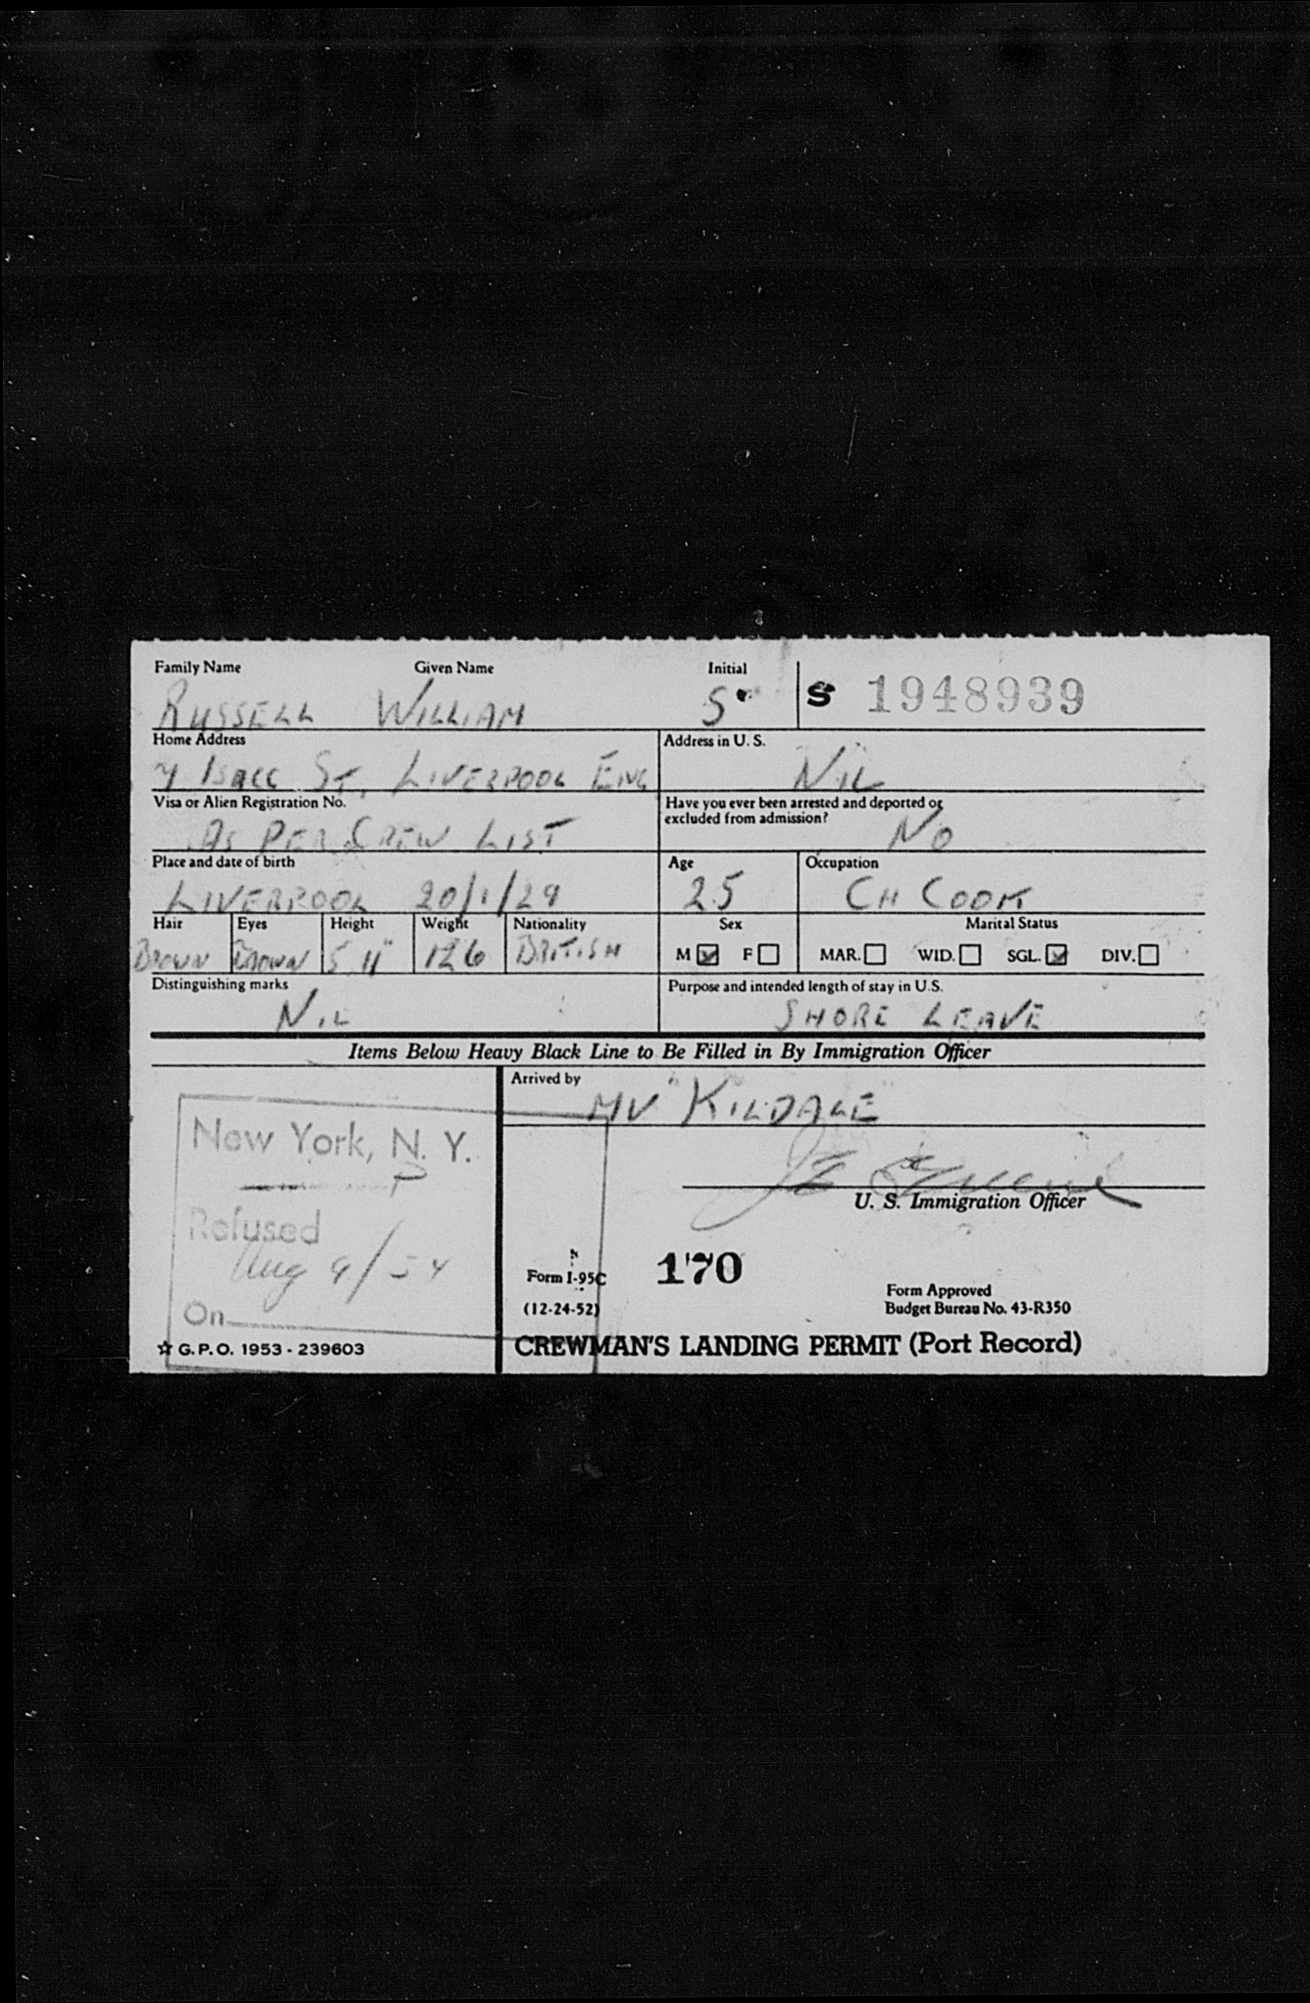 Family Name Given Name Initial
RUSSELL WILLIAM S S 1948939
Home Address Address in U. S.
ISACC ST. LIVERPOOL ENG NIL
Visa or Alien Registration No. Have you ever been arrested and deported or
excluded from admission?
AS PER CREW LIST NO
Place and date of birth Age Occupation
LIVERPOOL 20/1/29 25 CH COOK
Hair Eyes Height Weight Nationality Sex Marital Status
BROWN BROWN 5 11" 126 BRITISH M F MAR. WID. SGL. DIV.
Distinguishing marks Purpose and intended length of stay in U.S.
NIL SHORE LEAVE
Items Below Heavy Black Line to Be Filled in By Immigration Officer
Arrived by
MV "KILDALE"
New York, N. Y.
U. S. Immigration Officer
Refused
Aug 9/54
On
Form I-95C 170 Form Approved
(12-24-52) Budget Bureau No. 43-R350
☆ G.P.O. 1953 - 239603 CREWMAN'S LANDING PERMIT (Port Record)